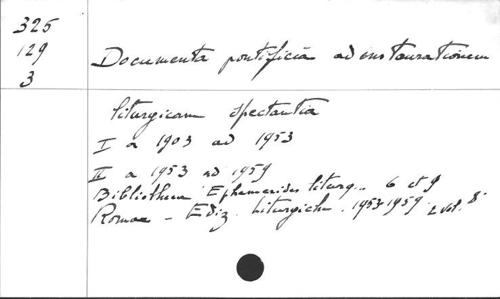 325
129
3
Documenta pontificia ad instaurationem
liturgicam spectantia
I a 1903 ad 1953
II a 1953 ad 1959
Bibliotheca Ephemerides liturg.. 6 et 9
Romae - Ediz. Liturgiche. 1953-1959. 2 vol. 8°